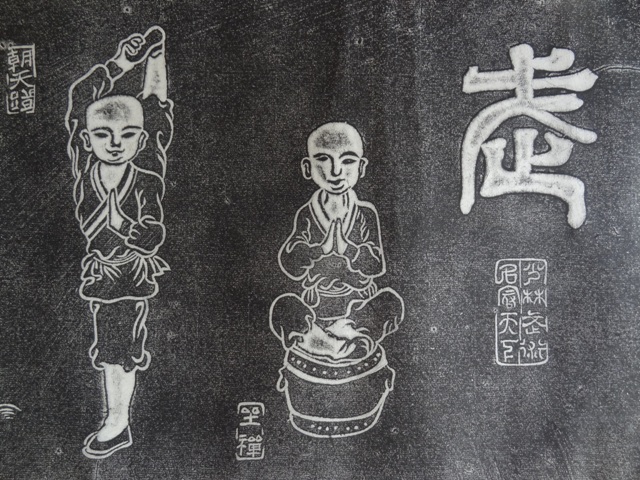 武
少林武術
名冠天下
坐禪
朝天蹬